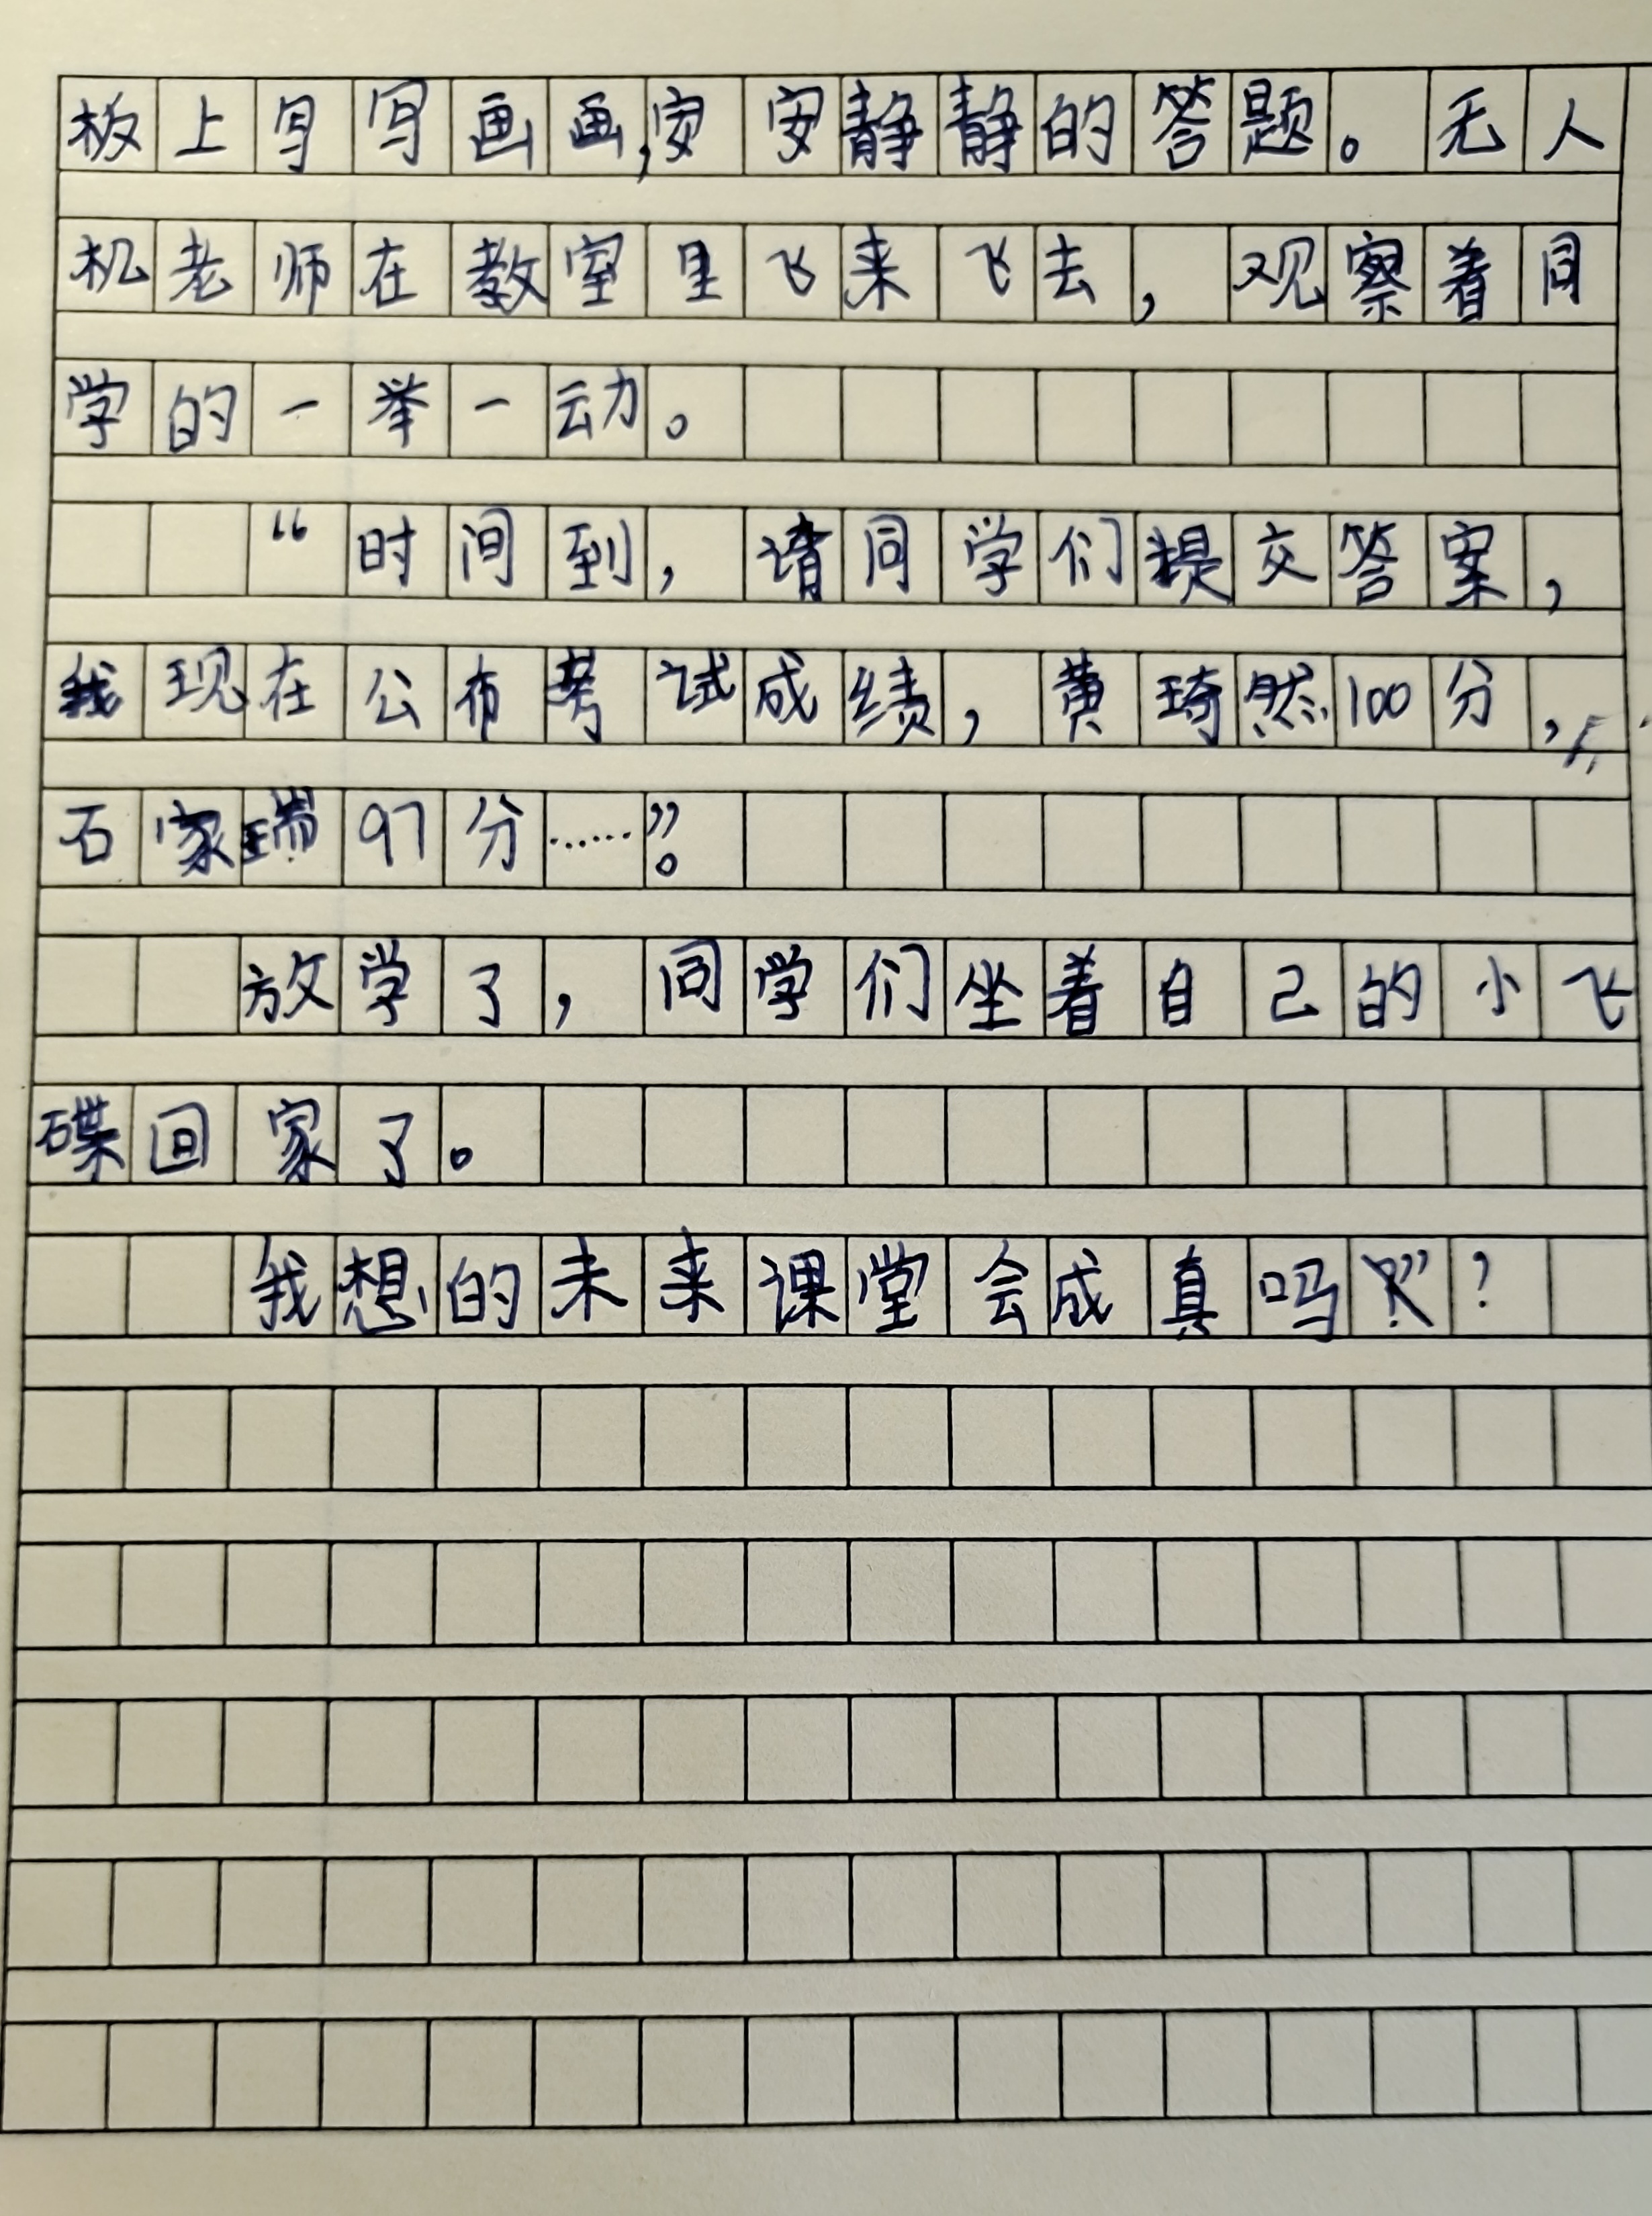 板上写写画画,安安静静的答题。无人
机老师在教室里飞来飞去，观察着同
学的一举一动。
“时间到，请同学们提交答案，
我现在公布考试成绩，黄琦然100分，
石家瑞97分……”。
放学了，同学们坐着自己的小飞
碟回家了。
我想的未来课堂会成真吗？